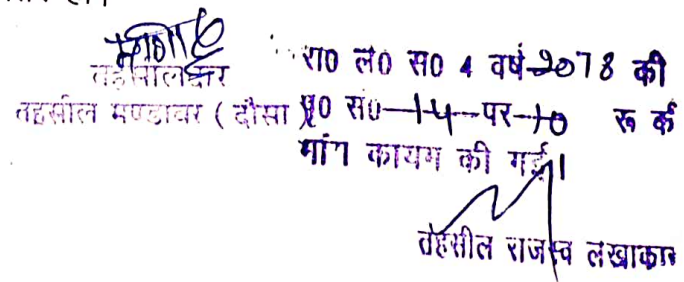 तहसीलदार
तहसील मण्डावर ( दौसा )
रा0 ले0 स0 4 वर्ष 2078 की
पृ0 सं0 14 पर 10 रू की
मांग कायम की गई।
तहसील राजस्व लेखाकार